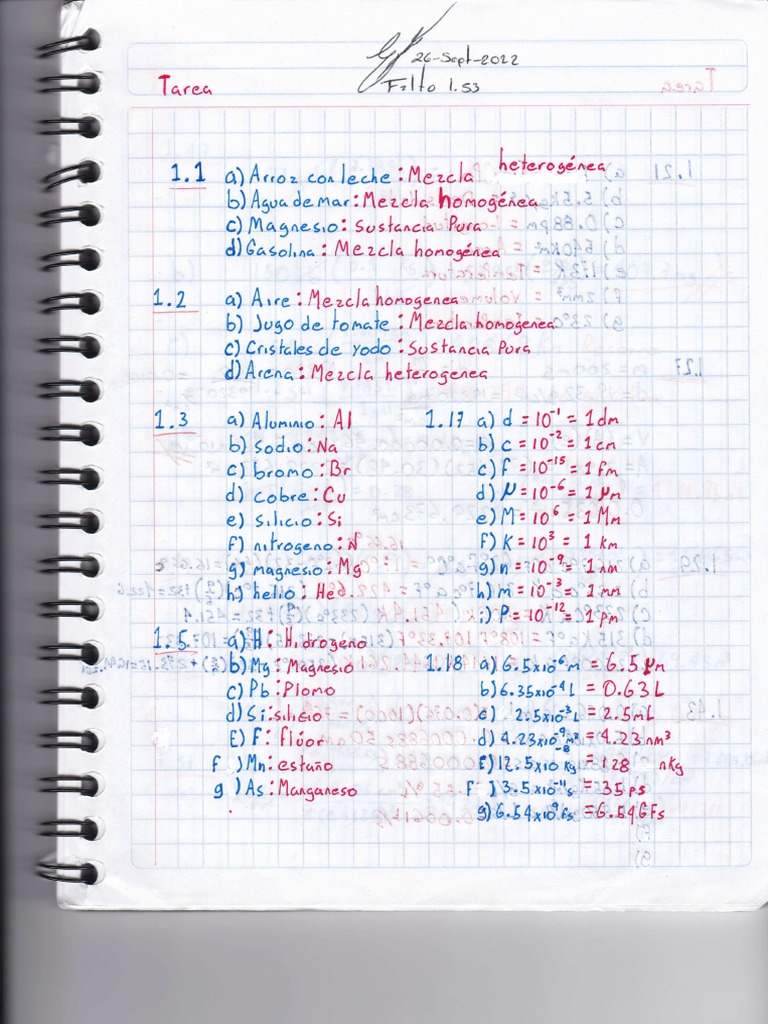 26-Sept-2022
Tarea
Falto 1.53
1.1 a) Arroz con leche: Mezcla heterogénea
b) Agua de mar: Mezcla homogénea
c) Magnesio: Sustancia Pura
d) Gasolina: Mezcla homogénea
1.2 a) Aire: Mezcla homogenea
b) Jugo de tomate: Mezcla homogenea
c) Cristales de yodo: Sustancia Pura
d) Arena: Mezcla heterogenea
1.3 a) Aluminio: Al
b) sodio: Na
c) bromo: Br
d) cobre: Cu
e) silicio: Si
f) nitrogeno: N
g) magnesio: Mg
h) helio: He
1.5 a) H: Hidrogeno
b) Mg: Magnesio
c) Pb: Plomo
d) Si: silicio
E) F: flúor
f) Mn: estaño
g) As: Manganeso
1.17 a) d = 10⁻¹ = 1 dm
b) c = 10⁻² = 1 cm
c) f = 10⁻¹⁵ = 1 fm
d) μ = 10⁻⁶ = 1 μm
e) M = 10⁶ = 1 Mm
F) K = 10³ = 1 km
g) n = 10⁻⁹ = 1 nm
h) m = 10⁻³ = 1 mm
i) P = 10⁻¹² = 1 pm
1.18 a) 6.5x10⁻⁶ m = 6.5 μm
b) 6.35x10⁻⁴ L = 0.63 L
c) 2.5x10⁻³ L = 2.5mL
d) 4.23x10⁻⁹ m³ = 4.23 nm³
E) 12.5x10⁻⁸ kg = 128 nkg
F) 3.5x10⁻¹¹ s = 35 ps
g) 6.54x10⁹ Fs = 6.54GFs